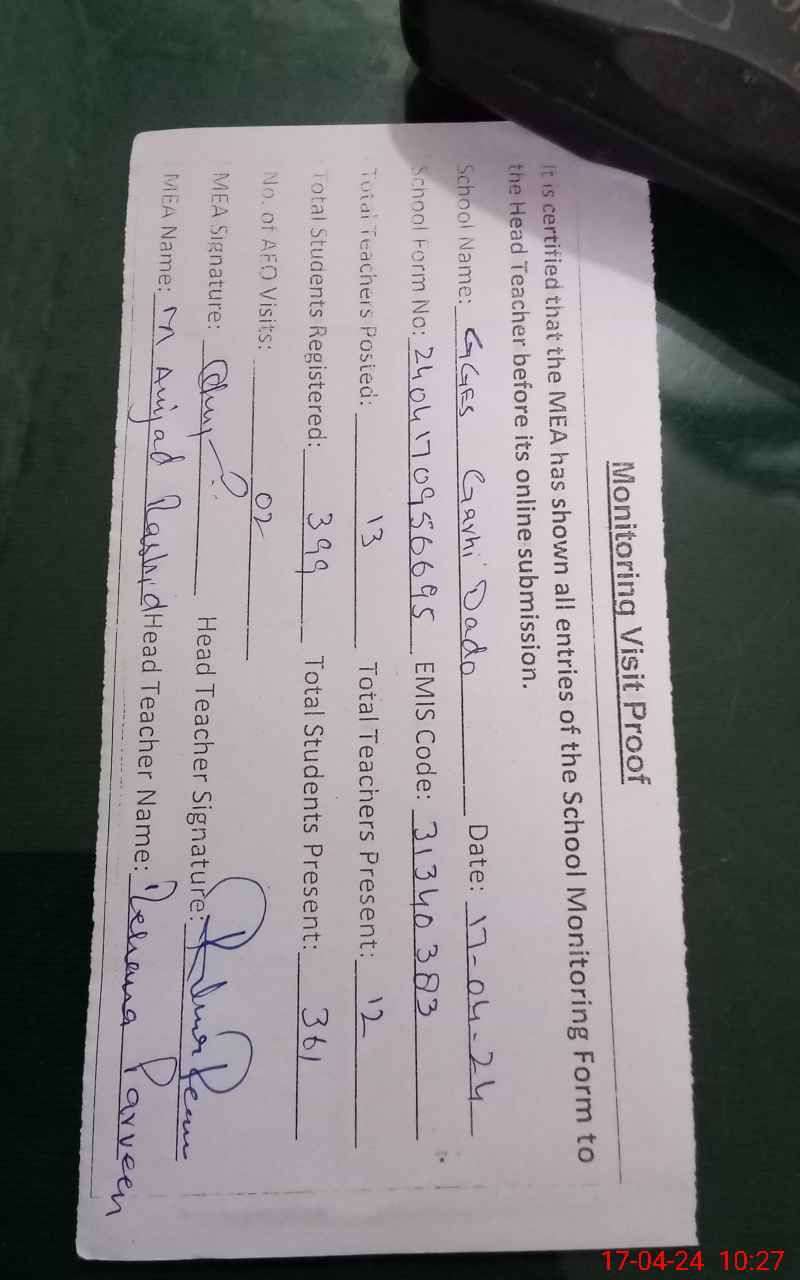 Monitoring Visit Proof
It is certified that the MEA has shown all entries of the School Monitoring Form to
the Head Teacher before its online submission.
School Name: GGES Garhi Dado Date: 17-04-24
School Form No: 2404170956695 EMIS Code: 31340383
Total Teachers Posted: 13 Total Teachers Present: 12
Total Students Registered: 399 Total Students Present: 361
No. of AEO Visits: 02
MEA Signature: Head Teacher Signature:
MEA Name: M Amjad Rashid Head Teacher Name: Rehana Parveen
17-04-24 10:27